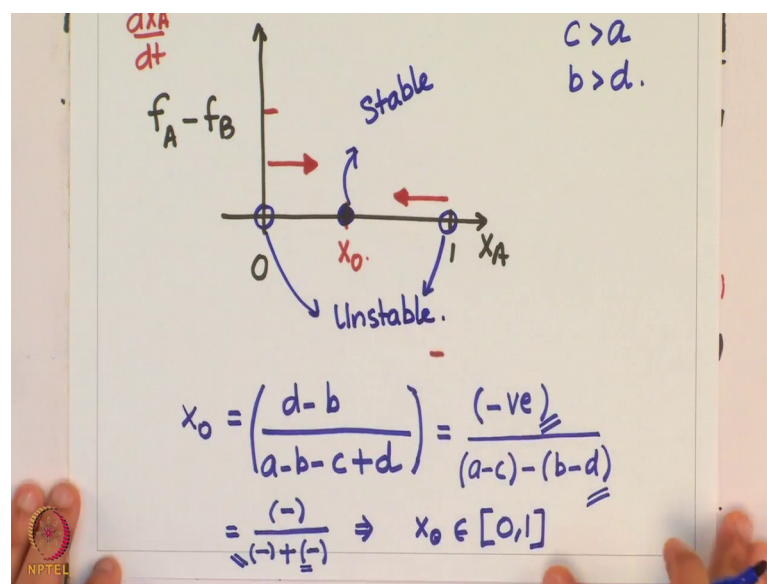 dxA
dt
c > a
b > d.
Stable
fA - fB
0
x0.
1
xA
Unstable.
x0 = (d-b / a-b-c+d) = (-ve) / (a-c)-(b-d)
= (-) / (-)+(-) ⇒ x0 ∈ [0,1]
NPTEL